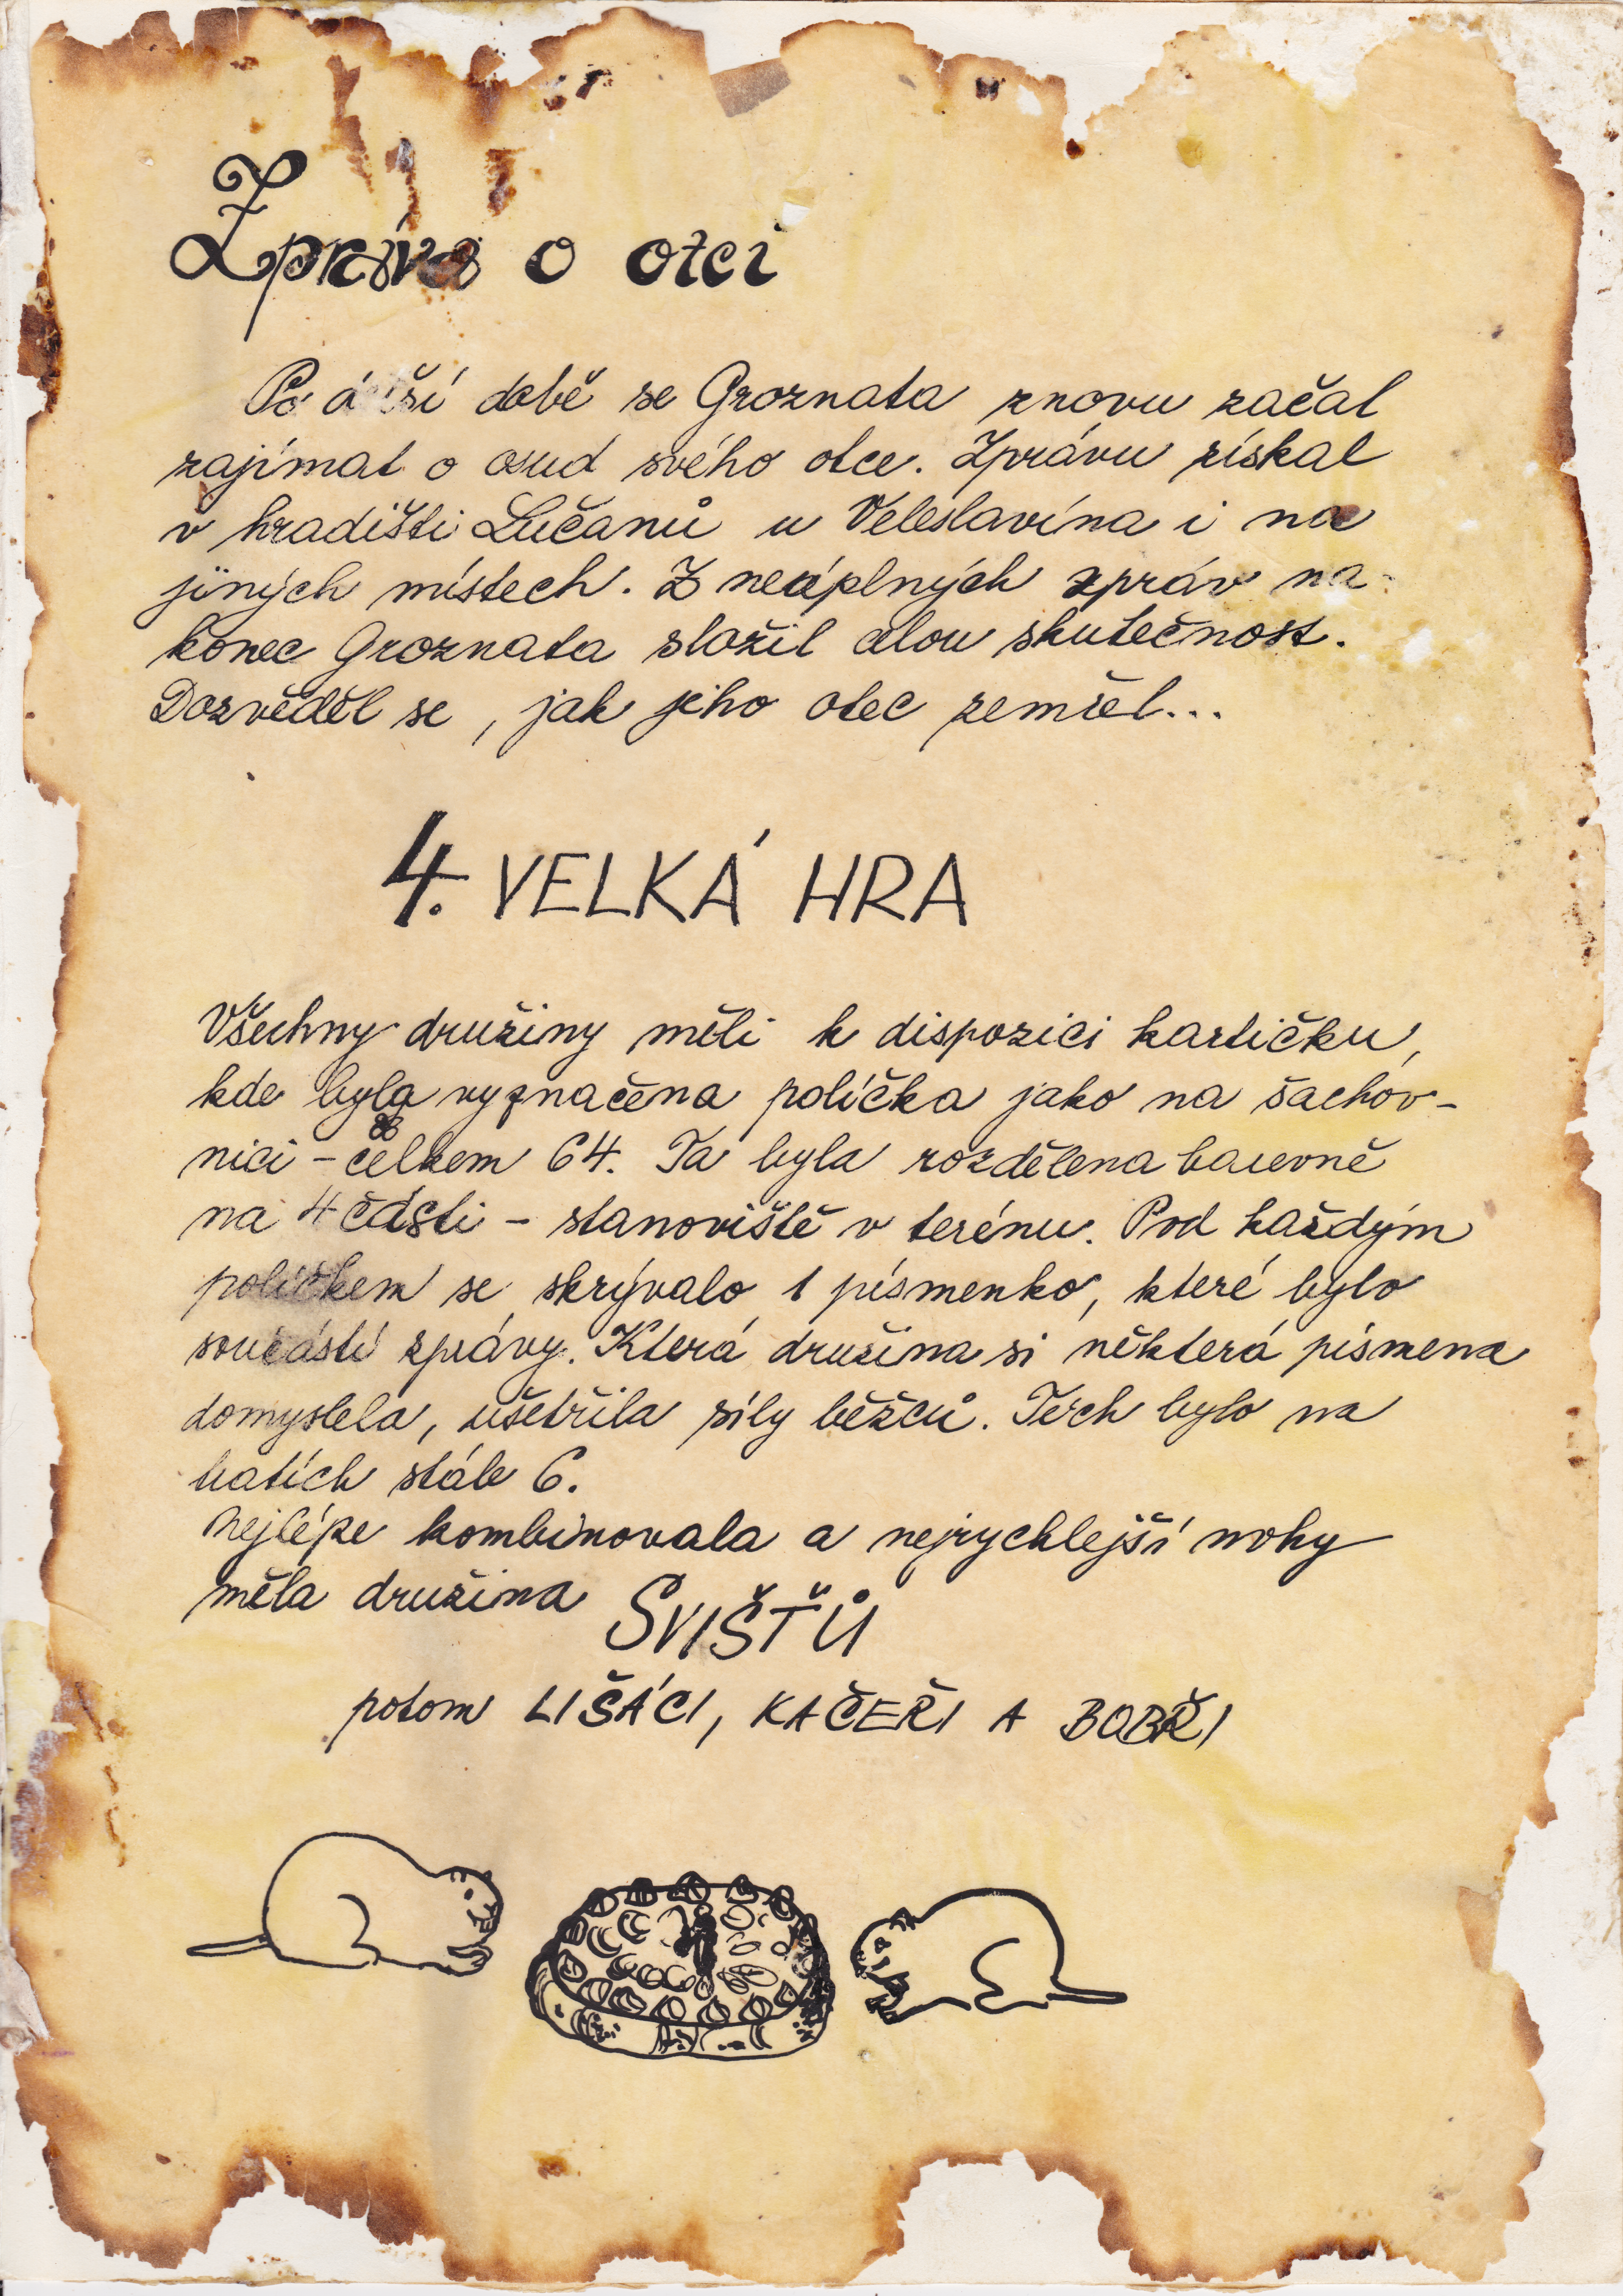 Zpráva o otci
Po delší době se Groznata znovu začal
zajímat o osud svého otce. Zprávu získal
v hradišti Lučanů u Veleslavína i na
jiných místech. Z neúplných zpráv na-
konec Groznata složil celou skutečnost.
Dozvěděl se, jak jeho otec zemřel...
4. VELKÁ HRA
Všechny družiny měli k dispozici kartičku,
kde byla vyznačena políčka jako na šachov-
nici - celkem 64. Ta byla rozdělena barevně
na 4 části - stanoviště v terénu. Pod každým
políčkem se skrývalo 1 písmenko, které bylo
součástí zprávy. Která družina si některá písmena
domyslela, ušetřila síly běžců. Těch bylo na
tratích stále 6.
Nejlépe kombinovala a nejrychlejší nohy
měla družina SVIŠŤŮ
potom LIŠÁCI, KAČEŘI A BOBŘI